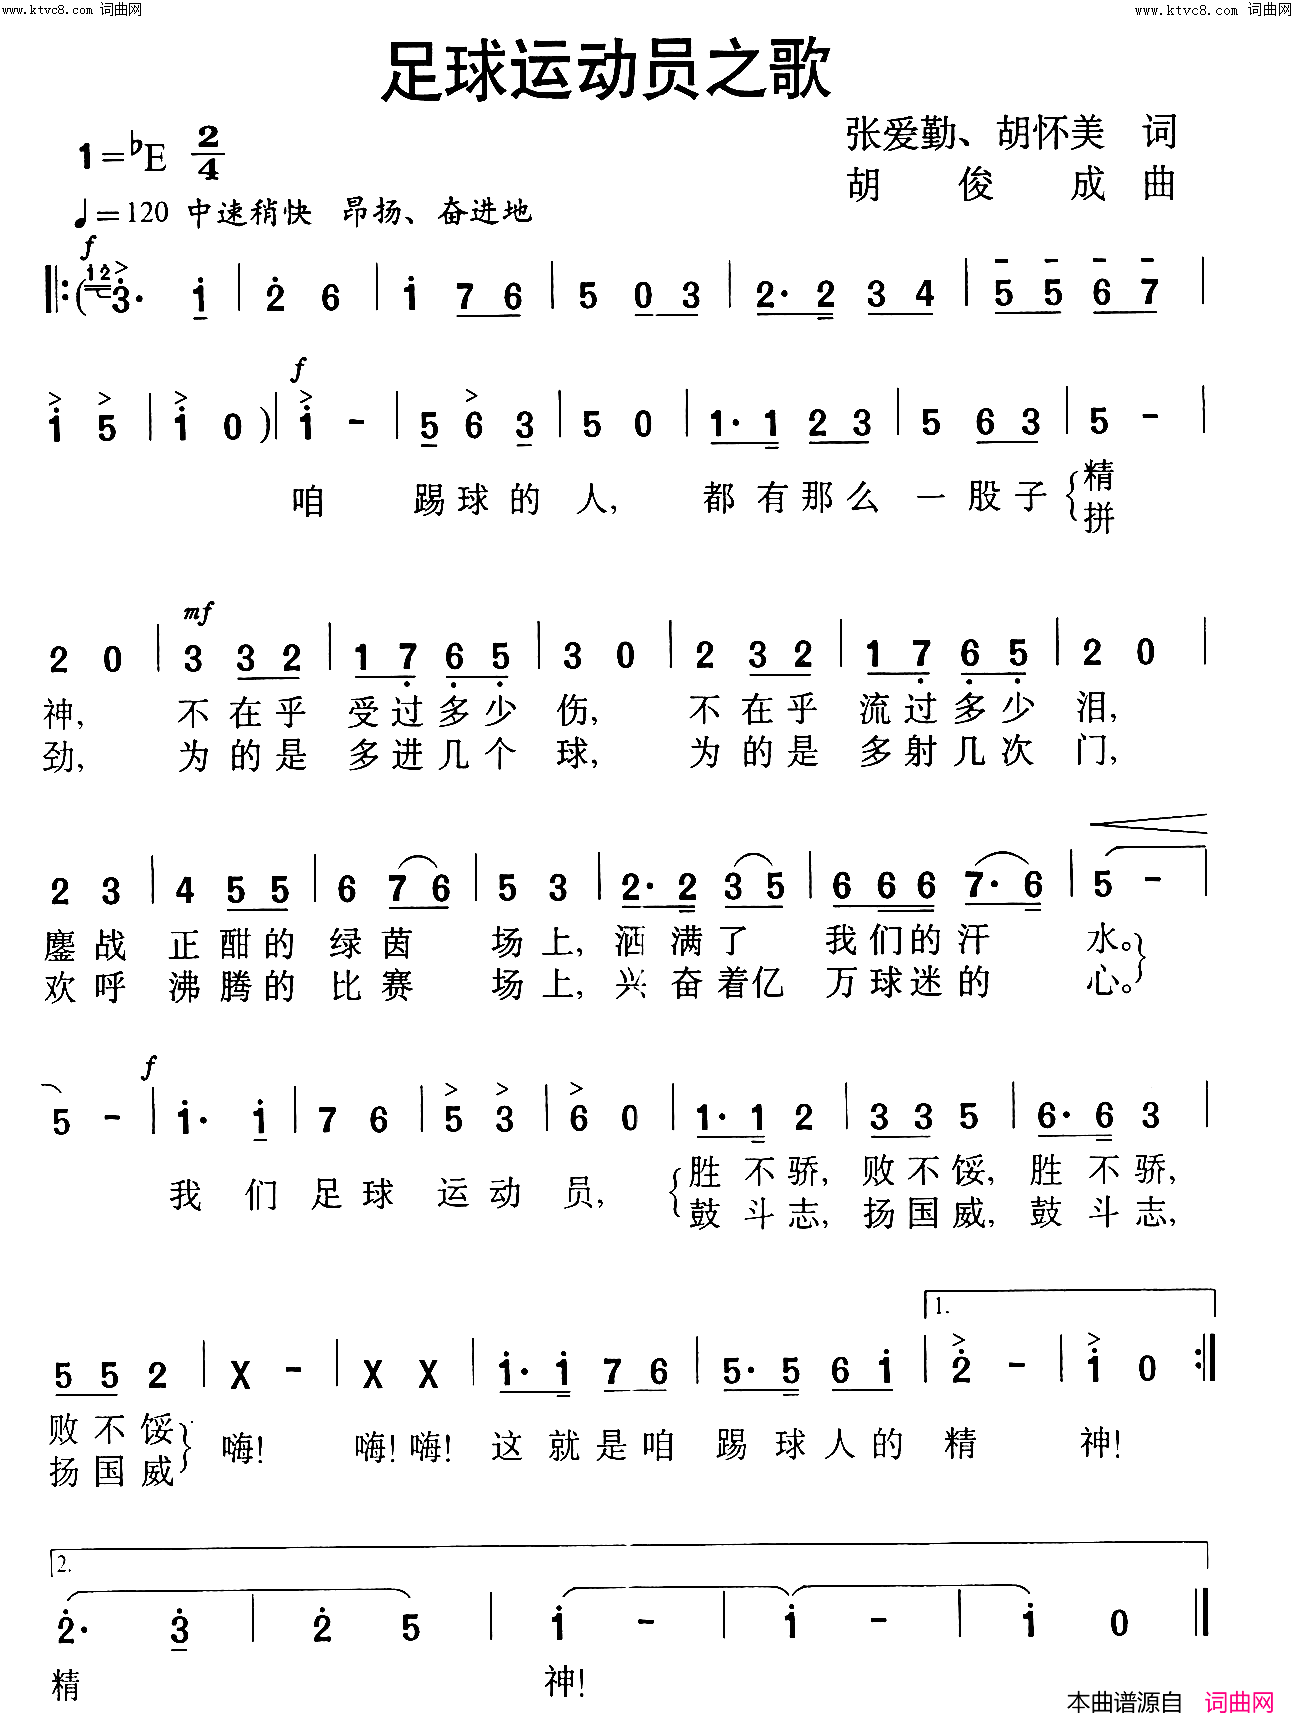 www.ktvc8.com 词曲网 www.ktvc8.com 词曲网
足球运动员之歌
1=♭E 2/4 张爱勤、胡怀美 词
胡 俊 成 曲
♩=120 中速稍快 昂扬、奋进地
f
‖:(1̇2̇3̇· 1̇ | 2̇ 6 | 1̇ 7 6 | 5 0 3 | 2· 2 3 4 | 5 5 6 7 |
f
1̇ 5 | 1̇ 0 )| 1̇ - | 5 6 3 | 5 0 | 1· 1 2 3 | 5 6 3 | 5 - |
咱 踢球的 人, 都有那么 一股子 { 精
拼
mf
2 0 | 3 3 2 | 1 7̣ 6̣ 5̣ | 3 0 | 2 3 2 | 1 7̣ 6̣ 5̣ | 2 0 |
神, 不在乎 受过多少 伤, 不在乎 流过多少 泪,
劲, 为的是 多进几个 球, 为的是 多射几次 门,
2 3 | 4 5 5 | 6 7 6 | 5 3 | 2· 2 3 5 | 6 6 6 7· 6 | 5 - |
鏖战 正酣的 绿茵 场上, 洒满了 我们的汗 水。}
欢呼 沸腾的 比赛 场上, 兴奋着亿 万球迷的 心。}
f
5 - | 1̇· 1̇ | 7 6 | 5 3 | 6 0 | 1· 1 2 | 3 3 5 | 6· 6 3 |
我 们 足球 运动 员, { 胜不骄, 败不馁, 胜不骄,
鼓斗志, 扬国威, 鼓斗志,
1.
5 5 2 | X - | X X | 1̇· 1̇ 7 6 | 5· 5 6 1̇ | 2̇ - | 1̇ 0 :‖
败不馁} 嗨! 嗨!嗨! 这就是咱 踢球人的 精 神!
扬国威}
2.
2̇· 3̇ | 2̇ 5 | 1̇ - | 1̇ - | 1̇ 0 ‖
精 神!
本曲谱源自 词曲网